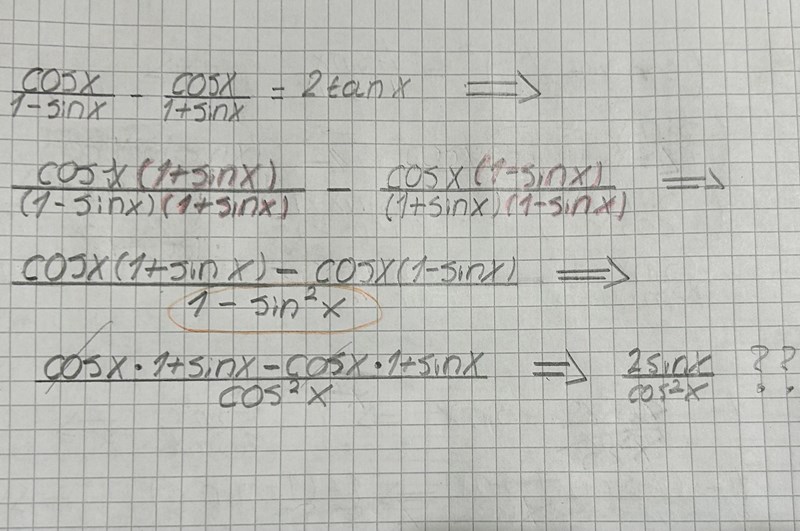 cosx/(1-sinx) - cosx/(1+sinx) = 2tanx ⟹
cosx(1+sinx)/((1-sinx)(1+sinx)) - cosx(1-sinx)/((1+sinx)(1-sinx)) ⟹
(cosx(1+sinx) - cosx(1-sinx))/(1-sin²x) ⟹
(cosx·1+sinx-cosx·1+sinx)/cos²x ⟹ 2sinx/cos²x ??